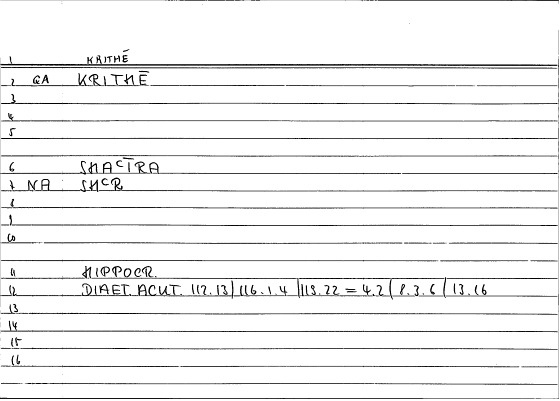 1 KRITHĒ
2 GA KRITHĒ
3
4
5
6 ŠHAᶜĪRA
7 NA ŠHᶜR
8
9
10
11 HIPPOCR.
12 DIAET. ACUT. 112.13| 116.1.4 |118.22 = 4.2 | 8.3.6 | 13.16
13
14
15
16